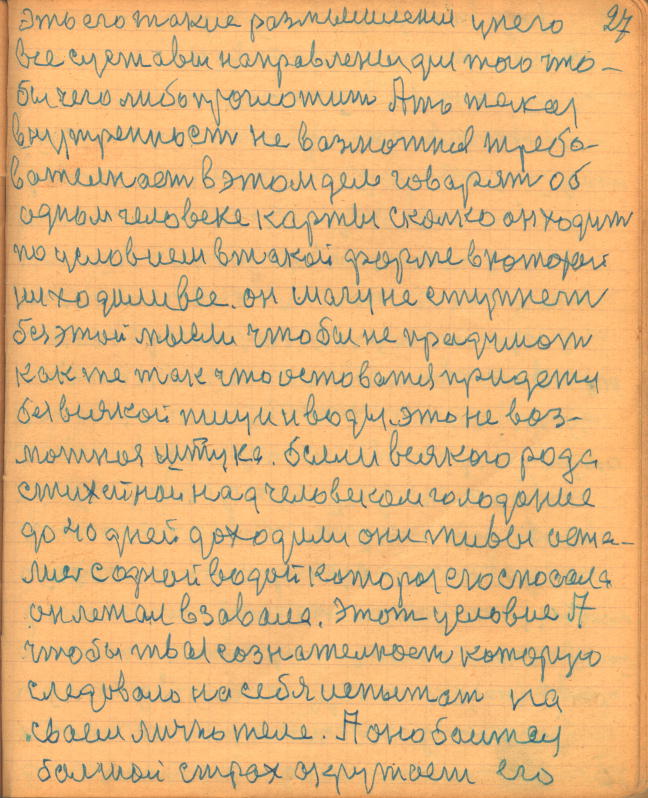 это его такие размышления у него 27
все суставы направлены для того что-
бы чего либо проглотит А ты такая
внутренност не возможная требо-
вателност в этом деле говарят об
одным человеке карты сколко он ходит
по условием в такой форме в которой
ни ходили все. он шагу не ступнет
без этой мысли чтобы не прадумот
как же так что остоватся придется
без всякой пищи и воды. это не воз-
можноя штука. более всякого рода
стихейной над человеком голодание
до 40 дней доходили они живы оста-
лис с одной водой которая его спосала
он лежал в завале. Этот условие А
чтобы твоя сознателност которую
следовало на себя испытат на
своем лично теле. А оно боится
балшой страх окружает его